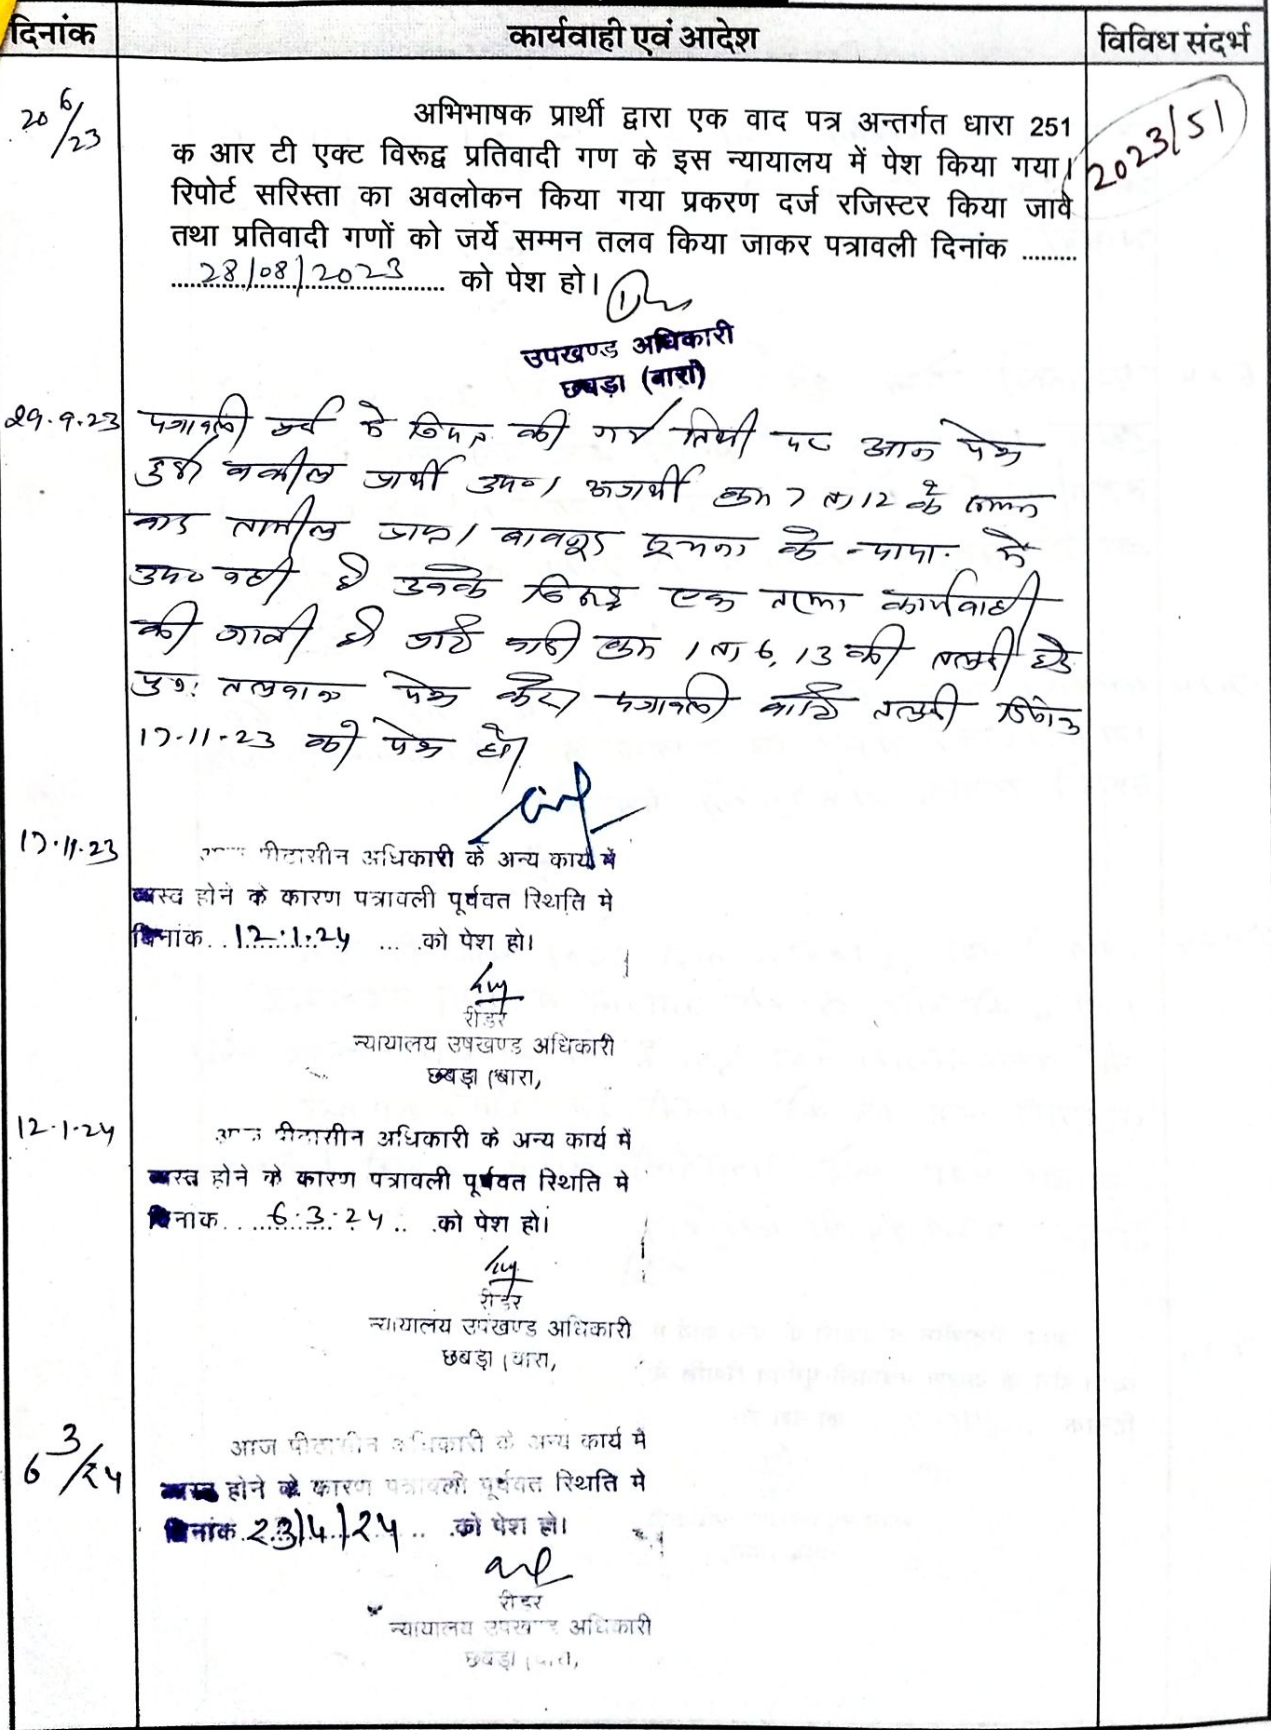 दिनांक कार्यवाही एवं आदेश विविध संदर्भ
20 6/23
2023/51
अभिभाषक प्रार्थी द्वारा एक वाद पत्र अन्तर्गत धारा 251
क आर टी एक्ट विरूद्व प्रतिवादी गण के इस न्यायालय में पेश किया गया।
रिपोर्ट सरिस्ता का अवलोकन किया गया प्रकरण दर्ज रजिस्टर किया जावे
तथा प्रतिवादी गणों को जर्ये सम्मन तलव किया जाकर पत्रावली दिनांक .........
28/08/2023 को पेश हो।
उपखण्ड अधिकारी
छबड़ा (बारां)
29.9.23 पत्रावली पूर्व के नियत की गई तिथी पर आज पेश
हुई वकील प्रार्थी उप०। अप्रार्थी क्रम 7 ता 12 के
बाद तामील प्राप्त। बावजूद सूचना के न्याया. में
उप० नही है उनके विरूद्ध एक तरफा कार्यवाही
की जाती है प्रति वादी क्रम 1 ता 6, 13 की तलबी हेतु
पुनः तलवाना पेश करे। पत्रावली वास्ते तलबी दिनांक
17-11-23 को पेश हो।
17.11.23
आज पीठासीन अधिकारी के अन्य कार्य में
व्यस्त होने के कारण पत्रावली पूर्ववत स्थिति मे
दिनांक. 12.1.24 ... .को पेश हो।
रीडर
न्यायालय उपखण्ड अधिकारी
छबड़ा (बारा,
12.1.24
आज पीठासीन अधिकारी के अन्य कार्य में
व्यस्त होने के कारण पत्रावली पूर्ववत स्थिति मे
दिनांक. 6.3.24 .. .को पेश हो।
रीडर
न्यायालय उपखण्ड अधिकारी
छबड़ा (बारा,
6 3/24
आज पीठासीन अधिकारी के अन्य कार्य में
व्यस्त होने के कारण पत्रावली पूर्ववत स्थिति मे
दिनांक 23/4/24 .. .को पेश हो।
रीडर
न्यायालय उपखण्ड अधिकारी
छबड़ा (बारा,